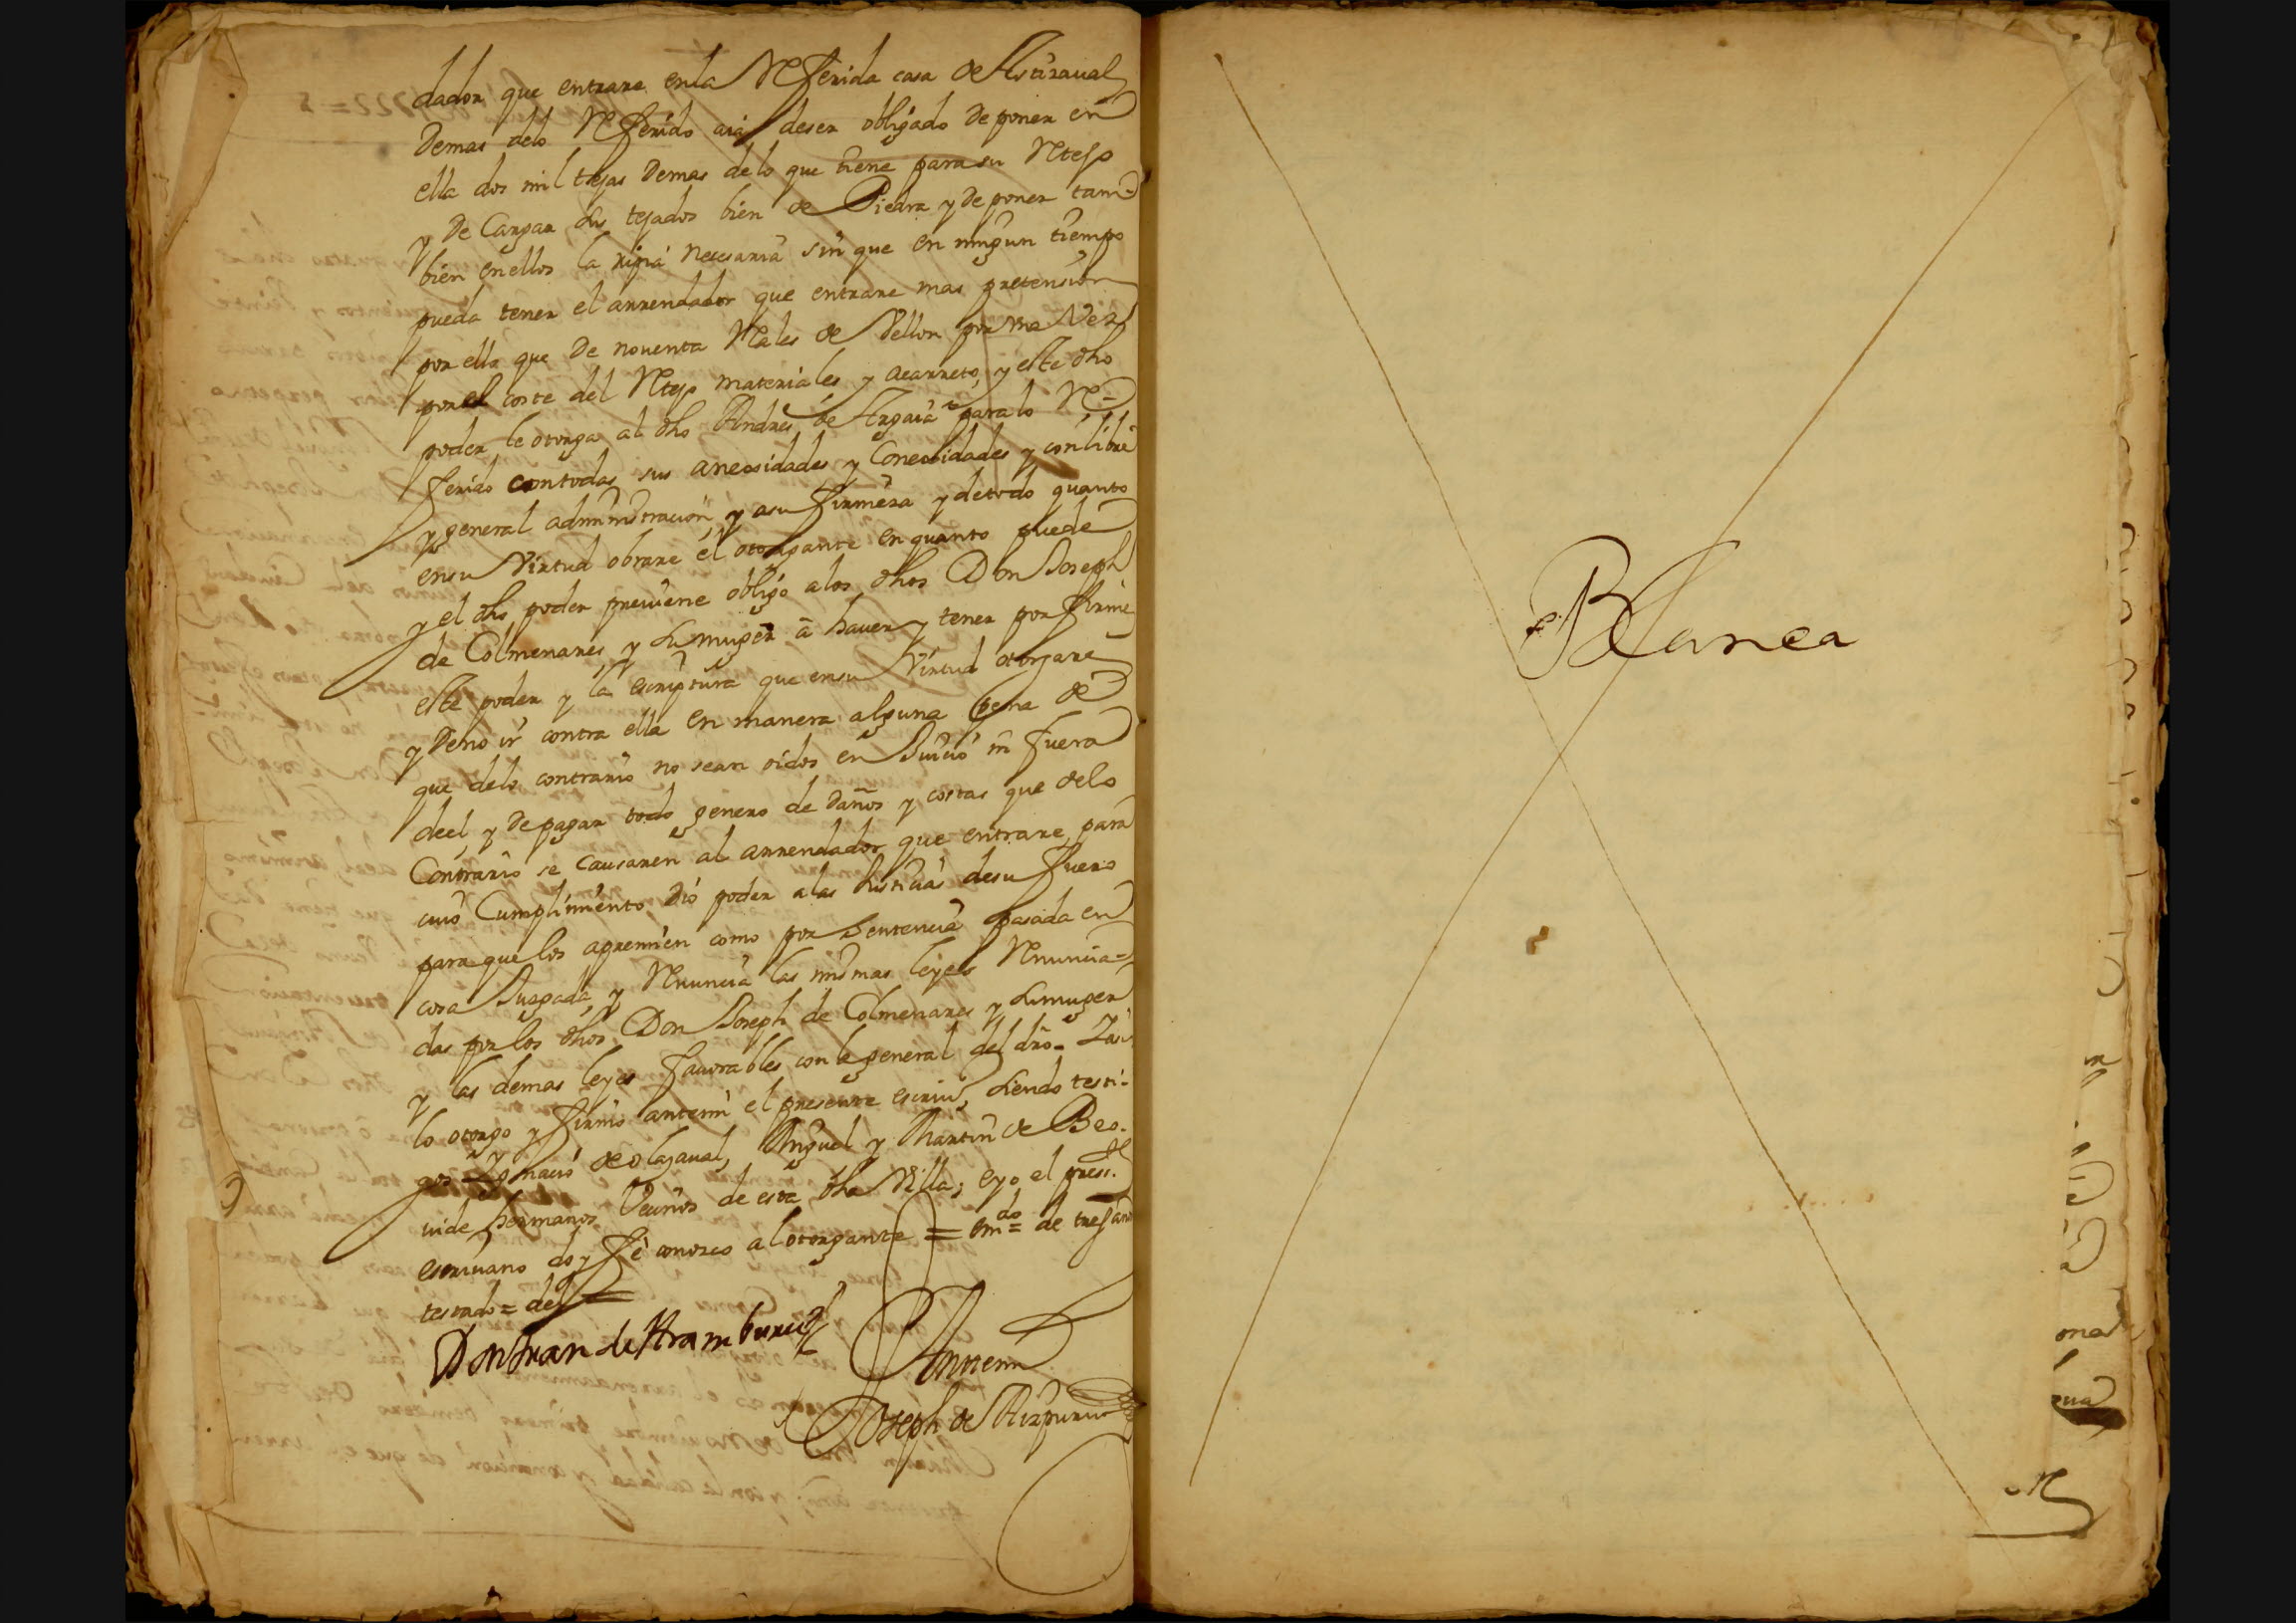 dador que entrare enla Referida casa de Astiraual
Demas delo Referido aia deser obligado de poner en
ella dos mil tejas Demas delo que tiene para su Retejo
y De Cargar sus tejados bien de Piedra y de poner tam-
bien enellos la ripia necesaria sin que en ningun tiempo
pueda tener el arrendador que entrare mas pretension
por ello que De nouenta Reales de Vellon por vna Vez
por el coste del Retejo materiales y acarreto, y este dho
poder le otorga al dho Andres de Argaia para lo Re-
ferido con todas sus anexsidades y Conexsidades y con libre
y general administracion, y asu firmeza y detodo quanto
ensu Virtud obrare el otorgante en quanto puede
y el dho poder preuiene obligo alos dhos Don Joseph
de Colmenares y su muger â hauer y tener por firme
este poder y la escriptura que ensu Virtud otorgare
y Deno ir contra ella en manera alguna pena de
que delo contrario no sean oidos en Juicio ni fuera
deel, y De pagar todo genero de daños y costas que delo
Contrario se causaren al arrendador que entrare, para
cuio Cumplimiento Dió poder alas Justicias desu fuero
para que los apremien como por Sentencia pasada en
cosa Juzgada, y Renuncia las mismas leyes Renuncia-
das por los dhos Don Joseph de Colmenares y su muger
y las demas leyes fauorables con la general del dro= Iasi
lo otorgo y firmo antemi el presente escriuo siendo testi-
gos Ygnacio de olazaual, Miguel y Martin de Beo-
uide hermanos Vecinos de esta dha Villa; eyo el press.te
escriuano doy fé conozco al otorgante = em.do=
testado = del =
Don Juan de Aramburu
Antemi
Joseph de Aizpuru
Blanca